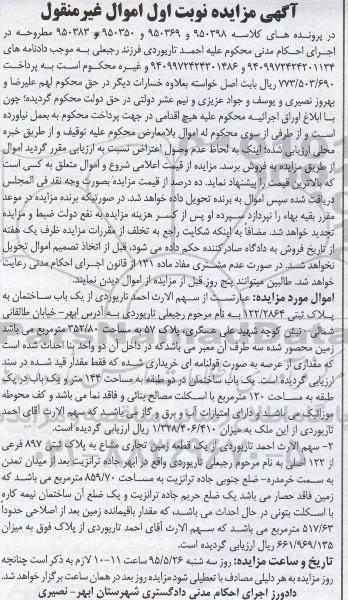 آگهی مزایده نوبت اول اموال غیر منقول
در پرونده های کلاسه ۹۵۰۳۹۸ و ۹۵۰۳۶۹ و ۹۵۰۳۵۰ و ۹۵۰۳۸۳ مطروحه در
اجرای احکام مدنی محکوم علیه احمد تاریوردی فرزند رجبعلی به موجب دادنامه های
۹۴۰۹۹۷۲۴۲۴۲۰۱۱۳۴ و ۹۴۰۹۹۷۲۴۲۴۲۰۱۴۸۶ و غیره محکوم است به پرداخت
۷۷۳/۵۰۳/۶۹۰ ریال بابت اصل خواسته بعلاوه خسارات دیگر در حق محکوم لهم علیرضا و
بهروز نصیری و یوسف و جواد عزیزی و نیم عشر دولتی در حق دولت محکوم گردیده؛ چون
با ابلاغ اوراق اجرائیه محکوم علیه هیچ اقدامی در جهت پرداخت محکوم به بعمل نیاورده
است و از طرفی از سوی محکوم له اموال بلامعارض محکوم علیه توقیف و از طریق خبره
محلی ارزیابی شده؛ اینک به لحاظ عدم وصول اعتراض نسبت به ارزیابی مقرر گردید اموال
از طریق مزایده به فروش برسد. مزایده از قیمت اعلامی شروع و اموال متعلق به کسی است
که بالاترین قیمت را پیشنهاد نماید. ده درصد از قیمت مزایده بصورت وجه نقد فی المجلس
دریافت شده سپس اموال به برنده تحویل داده خواهد شد. در صورتیکه برنده مزایده در موعد
مقرر بقیه بهاء را نپردازد سپرده او پس از کسر هزینه مزایده به نفع دولت ضبط و مزایده
تجدید خواهد شد. مضافا به اینکه شکایت راجع به تخلف از مقررات مزایده ظرف یک هفته
از تاریخ فروش به دادگاه صادر کننده حکم داده می شود، قبل از اتخاذ تصمیم اموال تحویل
نخواهد شد. در صورت عدم مشتری مفاد ماده ۱۳۱ از قانون اجرای احکام مدنی رعایت
خواهد شد. طالبین میتوانند پنج روز قبل از مزایده از اموال دیدن نمایند.
اموال مورد مزایده: عبارتست از سهم الارث احمد تاریوردی از یک باب ساختمان به
پلاک ثبتی ۱۲۲/۲۸۶۴ به نام مرحوم رجبعلی تاریوردی به آدرس ابهر- خیابان طالقانی
شمالی- نبش کوچه شهید علی عسکری، پلاک ۵۷ به مساحت ۳۵۲/۸۰ مترمربع می باشد
زمین محصور شده سه طرف آن معبر می باشد که در داخل آن دو واحد بنا احداث شده است
که مقداری از عرصه به صورت قولنامه ای خریداری شده که فقط مقدار قید شده در سند
ارزیابی گردیده است. یک باب ساختمان در دو طبقه به مساحت ۱۴۳ متر و یک باب در یک
طبقه به مساحت ۱۲۰ مترمربع با اسکلت مصالح بنائی و فاقد نما می باشد و کف محوطه
موزائیک می باشد و دارای امتیازات آب و برق و گاز می باشد که سهم الارث آقای احمد
تاریوردی از این ملک به میزان ۱/۳۲۸/۴۰۶/۴۱۰ ریال ارزیابی گردیده است.
۲- سهم الارث احمد تاریوردی از یک قطعه زمین تجاری مشاع به پلاک ثبتی ۸۹۷ فرعی
از ۱۲۲ اصلی به نام مرحوم رجبعلی تاریوردی واقع در ابهر جاده ترانزیت بعد از میدان تمدن
به سمت خرمدره- ضلع جنوبی جاده ترانزیت به مساحت ۸۵۹/۷۰ مترمربع می باشد که
زمین فاقد حصار می باشد یک ضلع حریم جاده ترانزیت و یک ضلع آن ساختمان نیمه کاره
با اسکلت بتونی در حال احداث می باشد، که مقدار باقیمانده زمین بعد از اصلاحی حدودا
۵۱۷/۶۳ مترمربع می باشد که سهم الارث آقای احمد تاریوردی از پلاک فوق به میزان
۶۶۱/۹۶۹/۱۳۵ ریال ارزیابی گردیده است.
تاریخ و ساعت مزایده: روز سه شنبه ۹۵/۵/۲۶ ساعت ۱۱-۱۰ لازم به ذکر است چنانچه
روز مزایده به هر دلیلی مصادف با تعطیلی شود مزایده روز بعد در همان ساعت برگزار خواهد شد.
دادورز اجرای احکام مدنی دادگستری شهرستان ابهر- نصیری